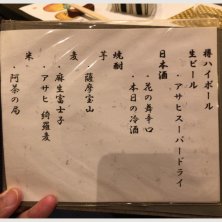 樽ハイボール
生ビール
・アサヒスーパードライ
日本酒
・花の舞辛口
・本日の冷酒
焼酎
芋
・薩摩宝山
麦
・麻生富士子
・アサヒ 綺羅麦
米
・阿茶の局